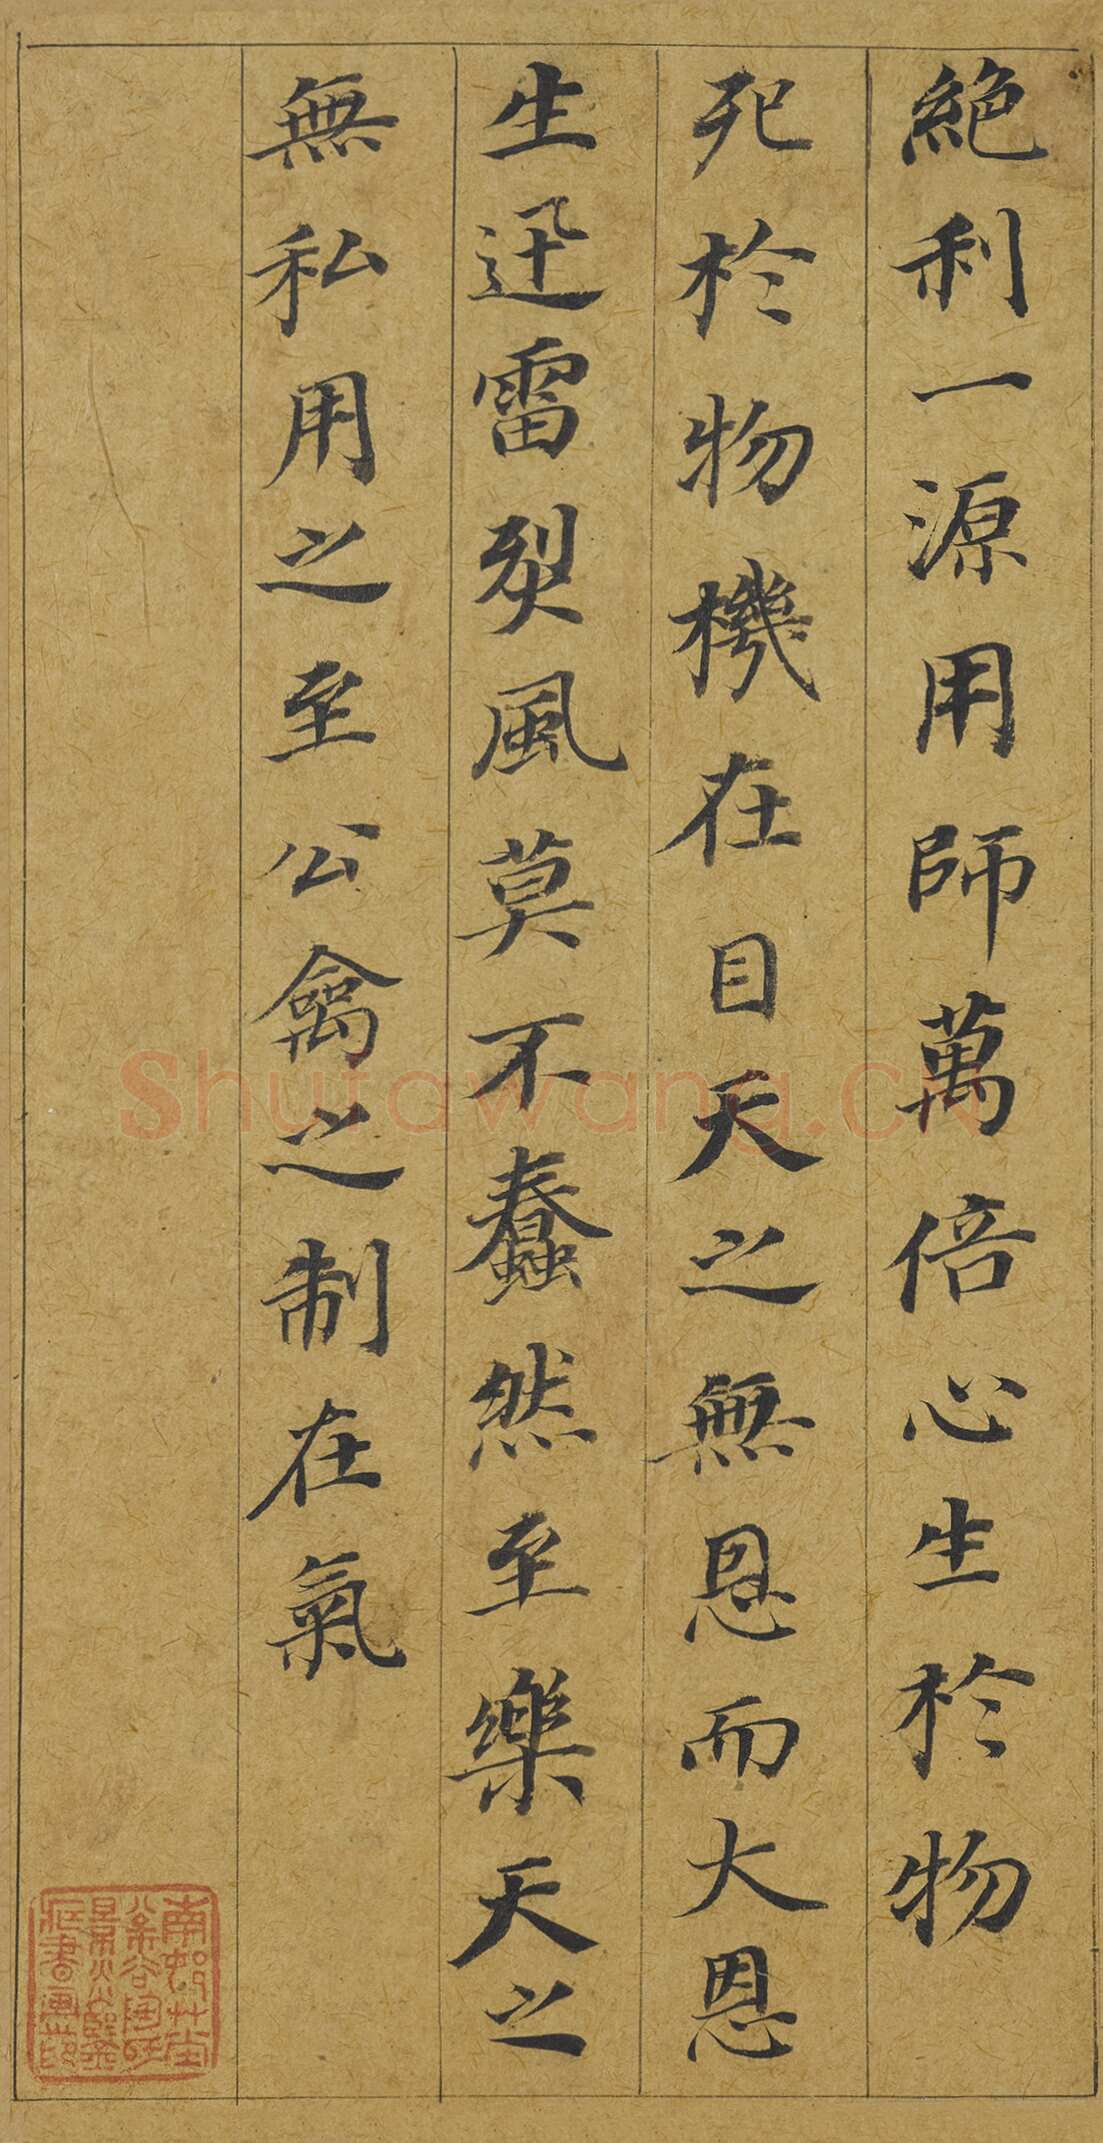 絶利一源用師萬倍心生於物
死於物機在目天之無恩而大恩
生迅雷烈風莫不蠢然至樂天之
無私用之至公禽之制在氣
Shufawang.cn